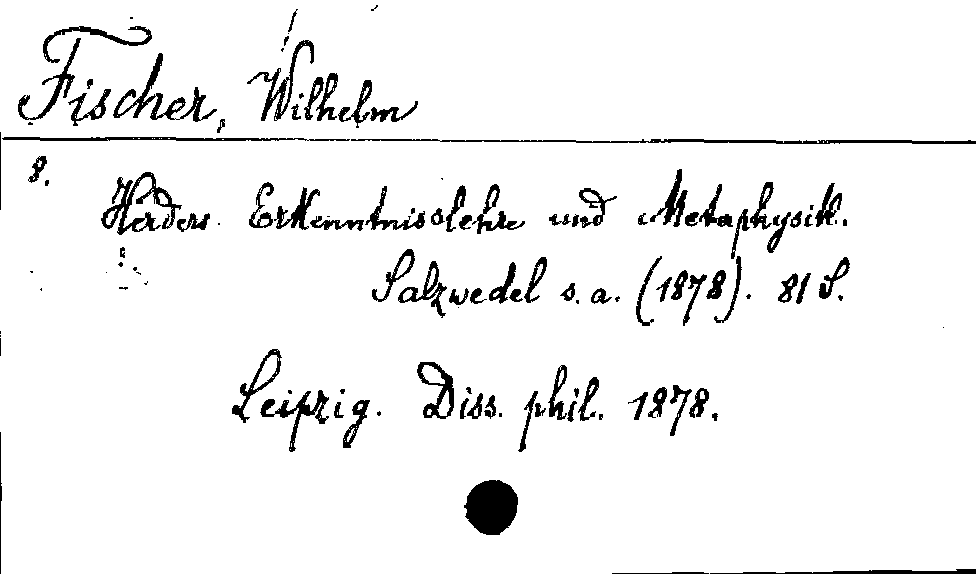 Fischer, Wilhelm
8.
Herders Erkenntnisslehre und Metaphysik.
Salzwedel s. a. (1878). 81 S.
Leipzig. Diss. phil. 1878.